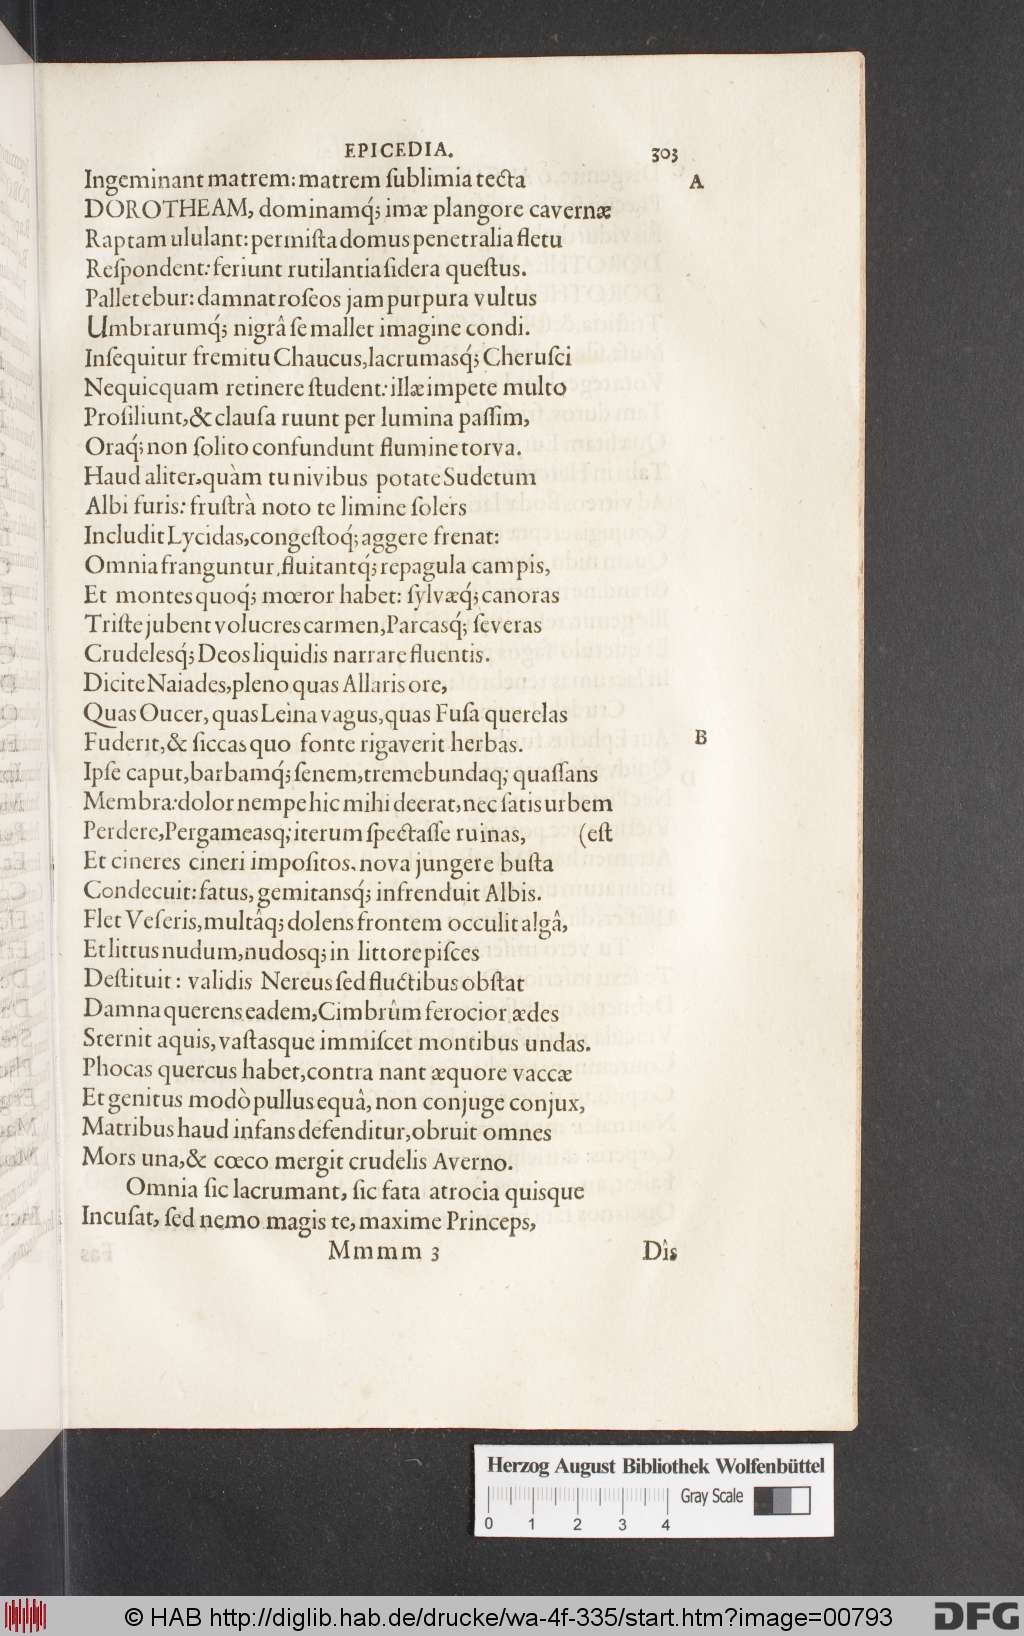 EPICEDIA. 303
Ingeminant matrem: matrem ſublimia tecta A
DOROTHEAM, dominamq́; imæ plangore cavernæ
Raptam ululant: permiſta domus penetralia fletu
Reſpondent: feriunt rutilantia ſidera queſtus.
Pallet ebur: damnat roſeos jam purpura vultus
Umbrarumq́; nigrâ ſe mallet imagine condi.
Inſequitur fremitu Chaucus, lacrumasq́; Cheruſci
Nequicquam retinere ſtudent: illæ impete multo
Proſiliunt, & clauſa ruunt per lumina paſſim,
Oraq́; non ſolito confundunt flumine torva.
Haud aliter. quàm tu nivibus potate Sudetum
Albi furis: fruſtrà noto te limine ſolers
Includit Lycidas, congeſtoq́; aggere frenat:
Omnia franguntur, fluitantq́; repagula campis,
Et montes quoq́; mœror habet: ſylvæq́; canoras
Triſte jubent volucres carmen, Parcasq́; ſeveras
Crudelesq́; Deos liquidis narrare fluentis.
Dicite Naiades, pleno quas Allaris ore,
Quas Oucer, quas Leina vagus, quas Fuſa querelas
Fuderit, & ſiccas quo fonte rigaverit herbas. B
Ipſe caput, barbamq́; ſenem, tremebundaq; quaſſans
Membra: dolor nempe hic mihi deerat, nec ſatis urbem
Perdere, Pergameasq; iterum ſpectaſſe ruinas, (eſt
Et cineres cineri impoſitos. nova jungere buſta
Condecuit: fatus, gemitansq́; infrenduit Albis.
Flet Veſeris, multâq; dolens frontem occulit algâ,
Et littus nudum, nudosq; in littore piſces
Deſtituit: validis Nereus ſed fluctibus obſtat
Damna querens eadem, Cimbrûm ferocior ædes
Sternit aquis, vaſtasque immiſcet montibus undas.
Phocas quercus habet, contra nant æquore vaccæ
Et genitus modò pullus equâ, non conjuge conjux,
Matribus haud infans defenditur, obruit omnes
Mors una, & cœco mergit crudelis Averno.
Omnia ſic lacrumant, ſic fata atrocia quisque
Incuſat, ſed nemo magis te, maxime Princeps,
Mmmm 3 Dîs
Herzog August Bibliothek Wolfenbüttel
Gray Scale
0 1 2 3 4
© HAB http://diglib.hab.de/drucke/wa-4f-335/start.htm?image=00793 DFG